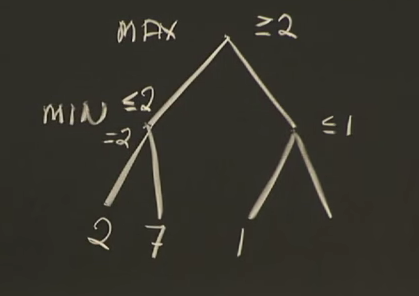 MAX ≥2
MIN ≤2
=2
≤1
2 7 1